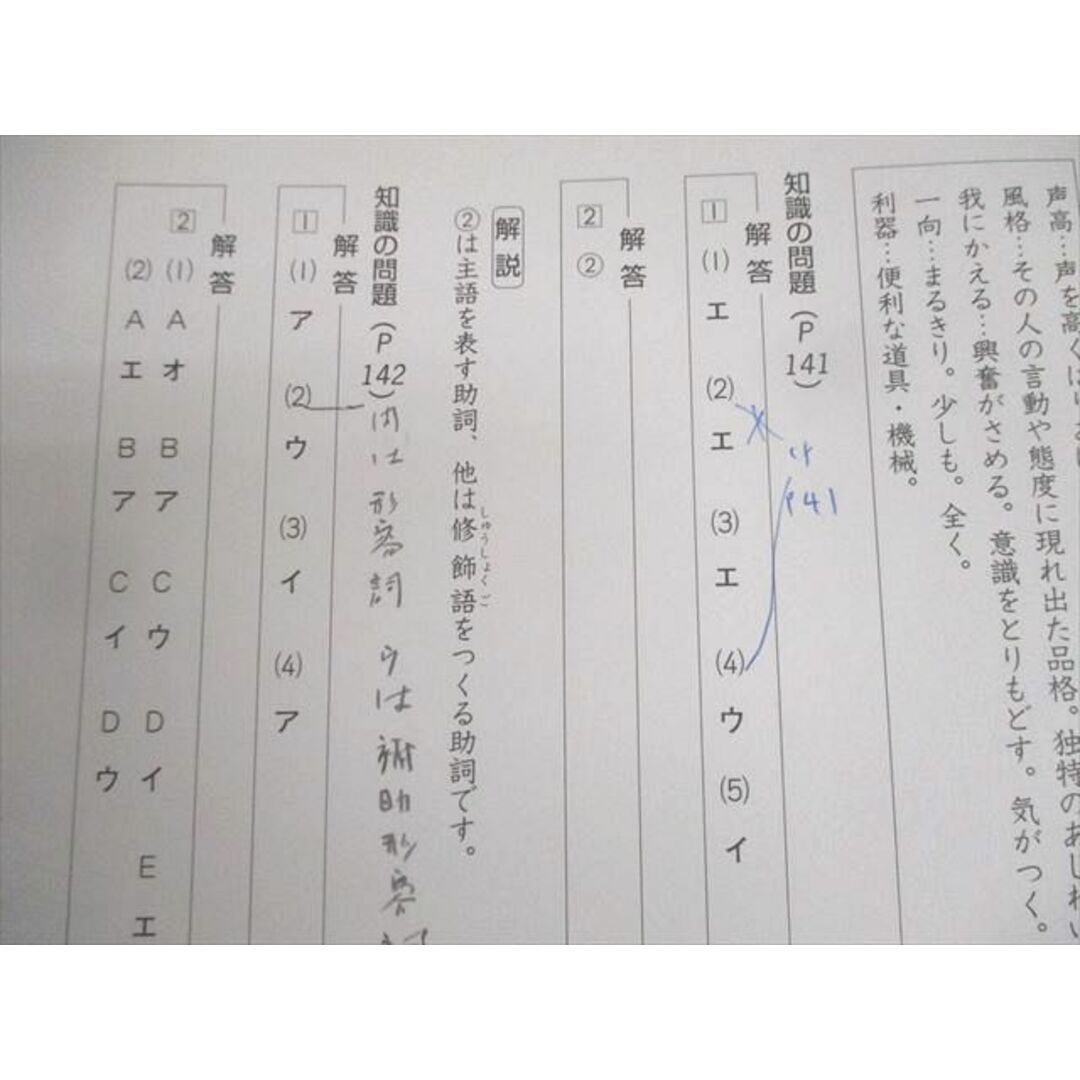 声高…声を高く
風格…その人の言動や態度に現れ出た品格。独特のあじわい
我にかえる…興奮がさめる。意識をとりもどす。気がつく。
一向…まるきり。少しも。全く。
利器…便利な道具・機械。
知識の問題（P141）
解答
1 (1) エ (2) エ (3) エ (4) ウ (5) イ
P41
解答
2 ②
解説
②は主語を表す助詞、他は修飾語をつくる助詞です。
しゅうしょくご
知識の問題（P142）
は形容詞 ウは補助形容
解答
1 (1) ア (2) ウ (3) イ (4) ア
解答
2 (1) A オ B ア C ウ D イ E エ
(2) A エ B ア C イ D ウ